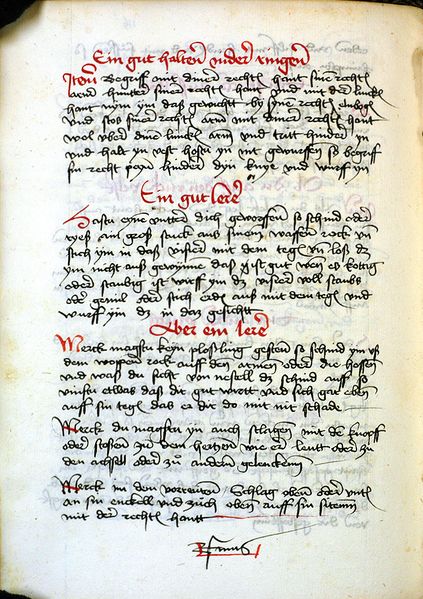 Ein gut halten under ringen
Item Begriff mit diner rechten hant sine rechten
arm hinder siner rechten hant und mit der lincken
hant nym ym das gewicht by syne rechten elnbogen
und stos siner rechten arm mit diner rechten hant
wol uber dine lincken arm und tritt hinder yn
und halt yn vest hastu yn nit geworffen so begriff
sin recht peyn hinder dyn knye und wirff yn
Ein gut lere
Hastu eyne unter dich geworffen so schind oder
ryeß ain groß stuck aus sinem waffen rock und
stich ym in daß visier mit dem tegen und loß dz
ym nicht auß gewynnen daß ist gut wen es kotig
oder staubig ist wirff ym dz visier voll staubs
oder gemil oder stich erden auß mit dem tegen und
wurff ym dz in dan gesichtt
Aber ein lere
Merck magstu keyn ploß ling gesten so schind ym uß
dem wappen rock auff den armen oder die hossen
und waß du sicht von nestell dz schind auff so
vinstu etwas daß dir gut wirtt und sich gar eben
auff sin tegen das er dir do mit nit schade
Merck du magst yn auch schlagen mit de knopff
oder stossen zu dem hertzen wie er leutt oder zu
den achsell oder zu andern gelenckenn
Merck in dem vortreten Schlag oben oder unten
an sin enckell und zuch oben auff sin sitenn
mit der rechten hantt